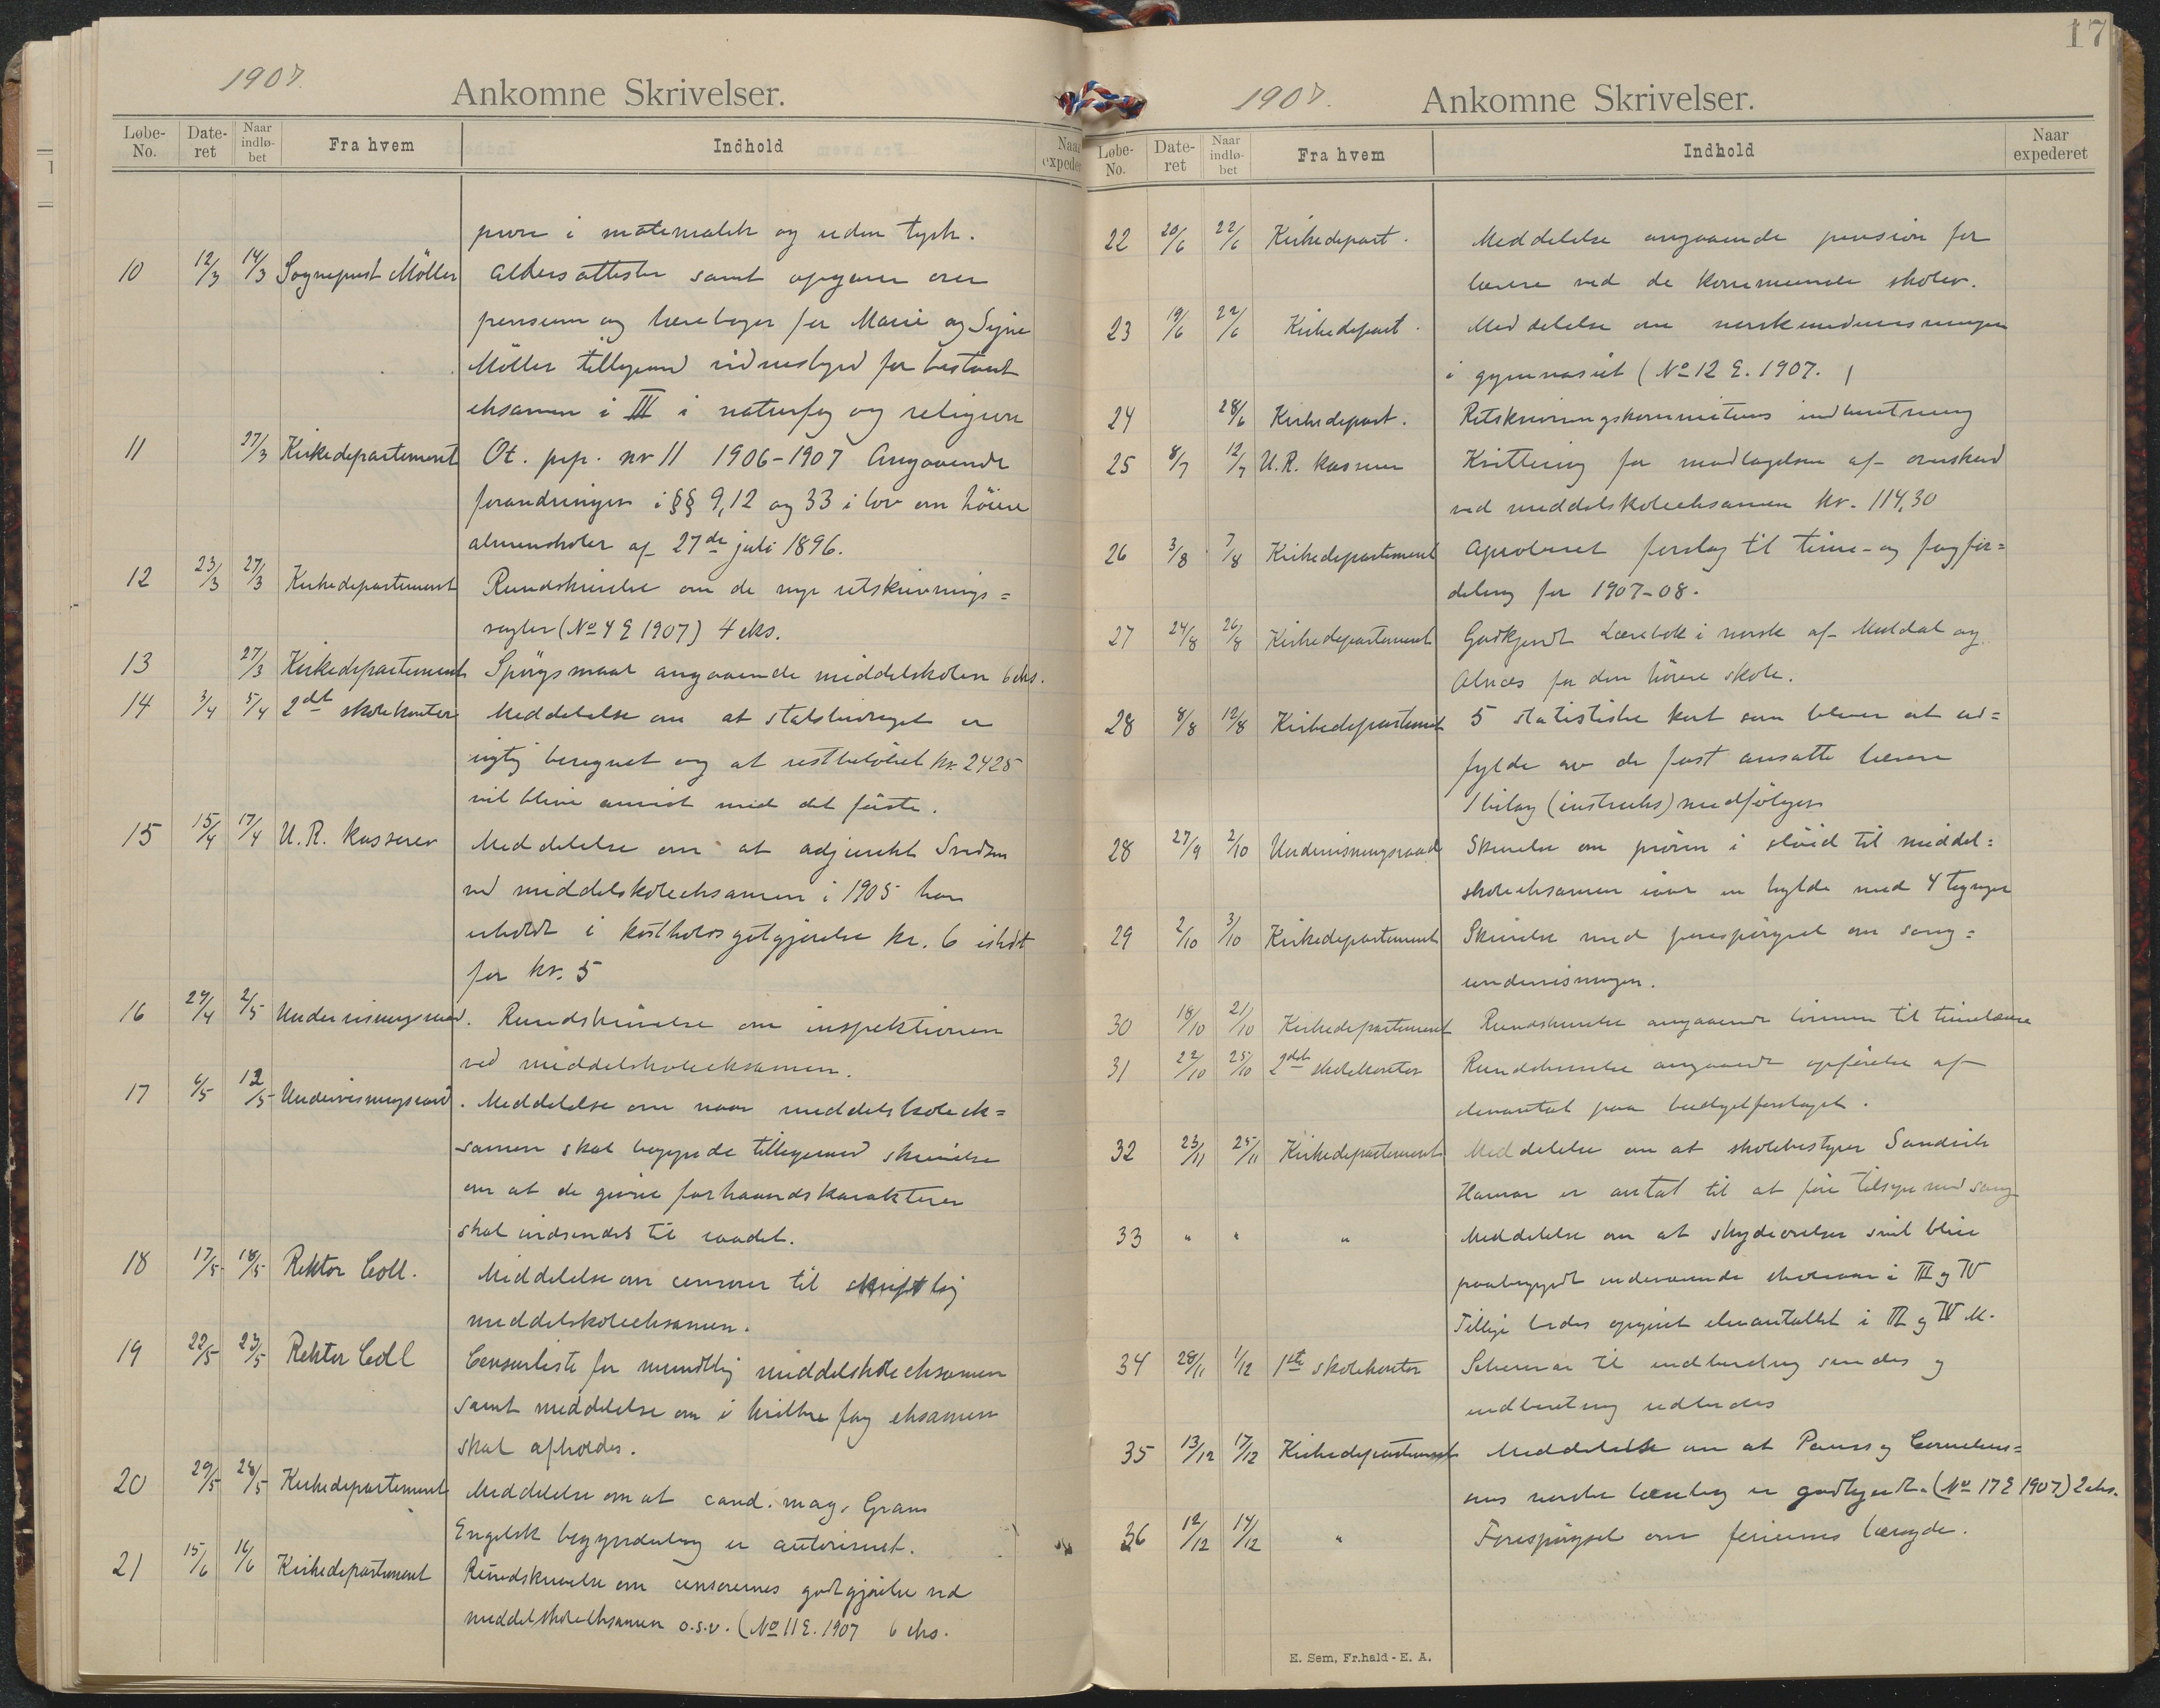 1907.
Ankomne Skrivelser.
Løbe-No. Date-ret Naar indlø-bet Fra hvem Indhold Naar expede
prøve i matematik og uden tysk.
10 12/3 14/3 Sogneprest Möller Aldersattester samt opgave over
pensum og lærebøger for Marie og Signe
Möller tilligemed vidnesbyrd for bestaaet
eksamen i III i naturfag og religion
11 27/3 Kirkedepartement Ot. prp. nr 11 1906-1907 Angaaende
forandringer i §§ 9,12 og 33 i lov om höiere
almenskoler af 27de juli 1896.
12 23/3 27/3 Kirkedepartement Rundskrivelse om de nye retskrivnings=
regler (No 4 E 1907) 4 eks.
13 27/3 Kirkedepartement Spörgsmaal angaaende middelskolen 6 eks.
14 3/4 5/4 2det skolekontor Meddelelse om at statsbidraget er
rigtig beregnet og at restbelöbet kr. 2425
vil blive anvist med det förste.
15 15/4 17/4 U. R. kasserer Meddelelse om at adjunkt
ved middelskoleeksamen i 1905 har
erholdt i kostholdsgodtgjørelse kr. 6 istedet
for kr. 5
16 29/4 2/5 Undervisningsraad. Rundskrivelse om inspektionen
ved middelskoleeksamen.
17 6/5 12/5 Undervisningsraad. Meddelelse om naar middelskoleek=
samen skal begynde tilligemed skrivelse
om at de givne forhaandskarakterer
skal indsendes til raadet.
18 17/5 18/5 Rektor Coll. Meddelelse om censorer til skriftlig
middelskoleeksamen.
19 22/5 23/5 Rektor Coll Censorliste for mundtlig middelskoleeksamen
samt meddelelse om i hvilke fag eksamen
skal afholdes.
20 29/5 Kirkedepartement Meddelelse om at cand. mag. Grans
Engelsk begynderbog er autoriseret.
21 15/6 16/6 Kirkedepartement Rundskrivelse om censorernes godtgjörelse ved
middelskoleeksamen o.s.v. (No 11 E. 1907 6 eks.
17
1907.
Ankomne Skrivelser.
Løbe-No. Date-ret Naar indlø-bet Fra hvem Indhold Naar expederet
22 20/6 22/6 Kirkedepart. Meddelelse angaaende pension for
lærere ved de kommunale skoler.
23 19/6 22/6 Kirkedepart. Meddelelse om norskundervisningen
i gymnasiet (No 12 E. 1907. )
24 28/6 Kirkedepart. Retskrivningskomiteens indberetning
25 8/7 12/7 U.R. kasserer Kvittering for modtagelsen af overskud
ved middelskoleeksamen kr. 114,30
26 3/8 7/8 Kirkedepartement Aproberet forslag til time- og fagfor=
deling for 1907-08.
27 24/8 26/8 Kirkedepartement Godkjendt Lærebok i norsk af og
Alnæs for den höiere skole.
28 8/8 12/8 Kirkedepartement 5 statistiske kort som bliver at ud=
fylde av de fast ansatte lærere
1 bilag (instruks) medfölger
28 27/9 2/10 Undervisningsraad Skrivelse om prøven i slöid til middel=
skoleeksamen iaar en hylde med 4 tegninger
29 2/10 3/10 Kirkedepartement Skrivelse med forespörgsel om sang=
undervisningen.
30 18/10 21/10 Kirkedepartement Rundskrivelse angaaende lönnen til timelærere
31 22/10 25/10 2det skolekontor Rundskrivelse angaaende opförelse af
elevantal paa budgetforslaget.
32 23/11 25/11 Kirkedepartement Meddelelse om at skolebestyrer Sandvik
Hamar er antat til at före tilsyn med sang
33 " " " Meddelelse om at skydeövelser vil blive
paabegyndt indeværende skoleaar i III og IV
Tillige bedes opgivet elevantallet i III og IV M.
34 28/11 1/12 1ste skolekontor Schemaer til indberetning sendes og
indberetning udbedes
35 13/12 17/12 Kirkedepartement Meddelelse om at Pauss og Cornelius=
sens norske læsebog er godkjendt. (No 17 E 1907) 2 eks.
36 12/12 14/12 " Forespörgsel om feriernes længde.
E. Sem, Fr.hald - E. A.